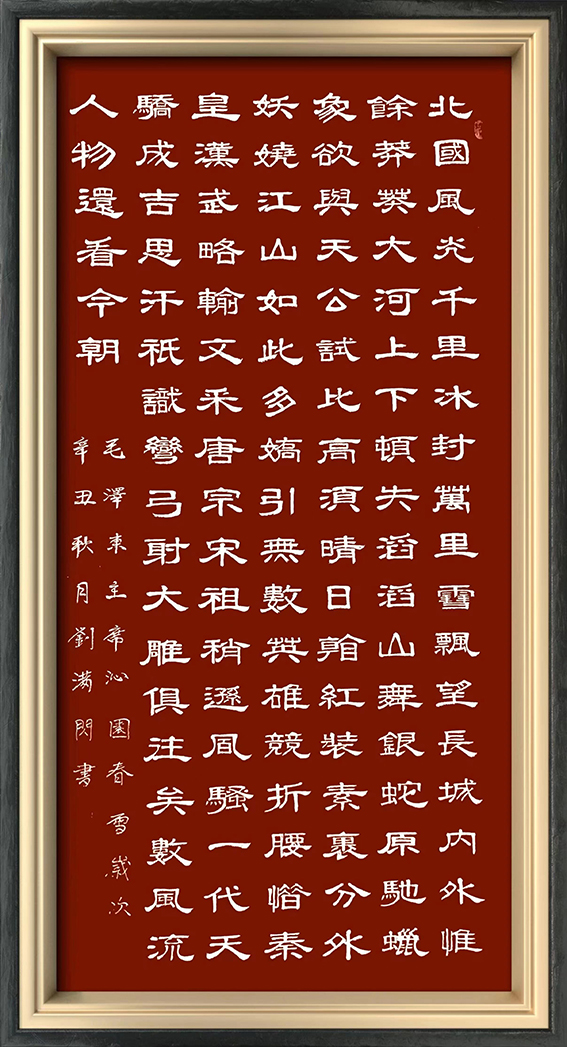 北國風光千里冰封萬里雪飄望長城內外惟
餘莽莽大河上下頓失滔滔山舞銀蛇原馳蠟
象欲與天公試比高須晴日看紅裝素裹分外
妖嬈江山如此多嬌引無數英雄競折腰惜秦
皇漢武略輸文采唐宗宋祖稍遜風騷一代天
驕成吉思汗祇識彎弓射大雕俱往矣數風流
人物還看今朝
毛澤東主席沁園春雪歲次
辛丑秋月劉滿閃書